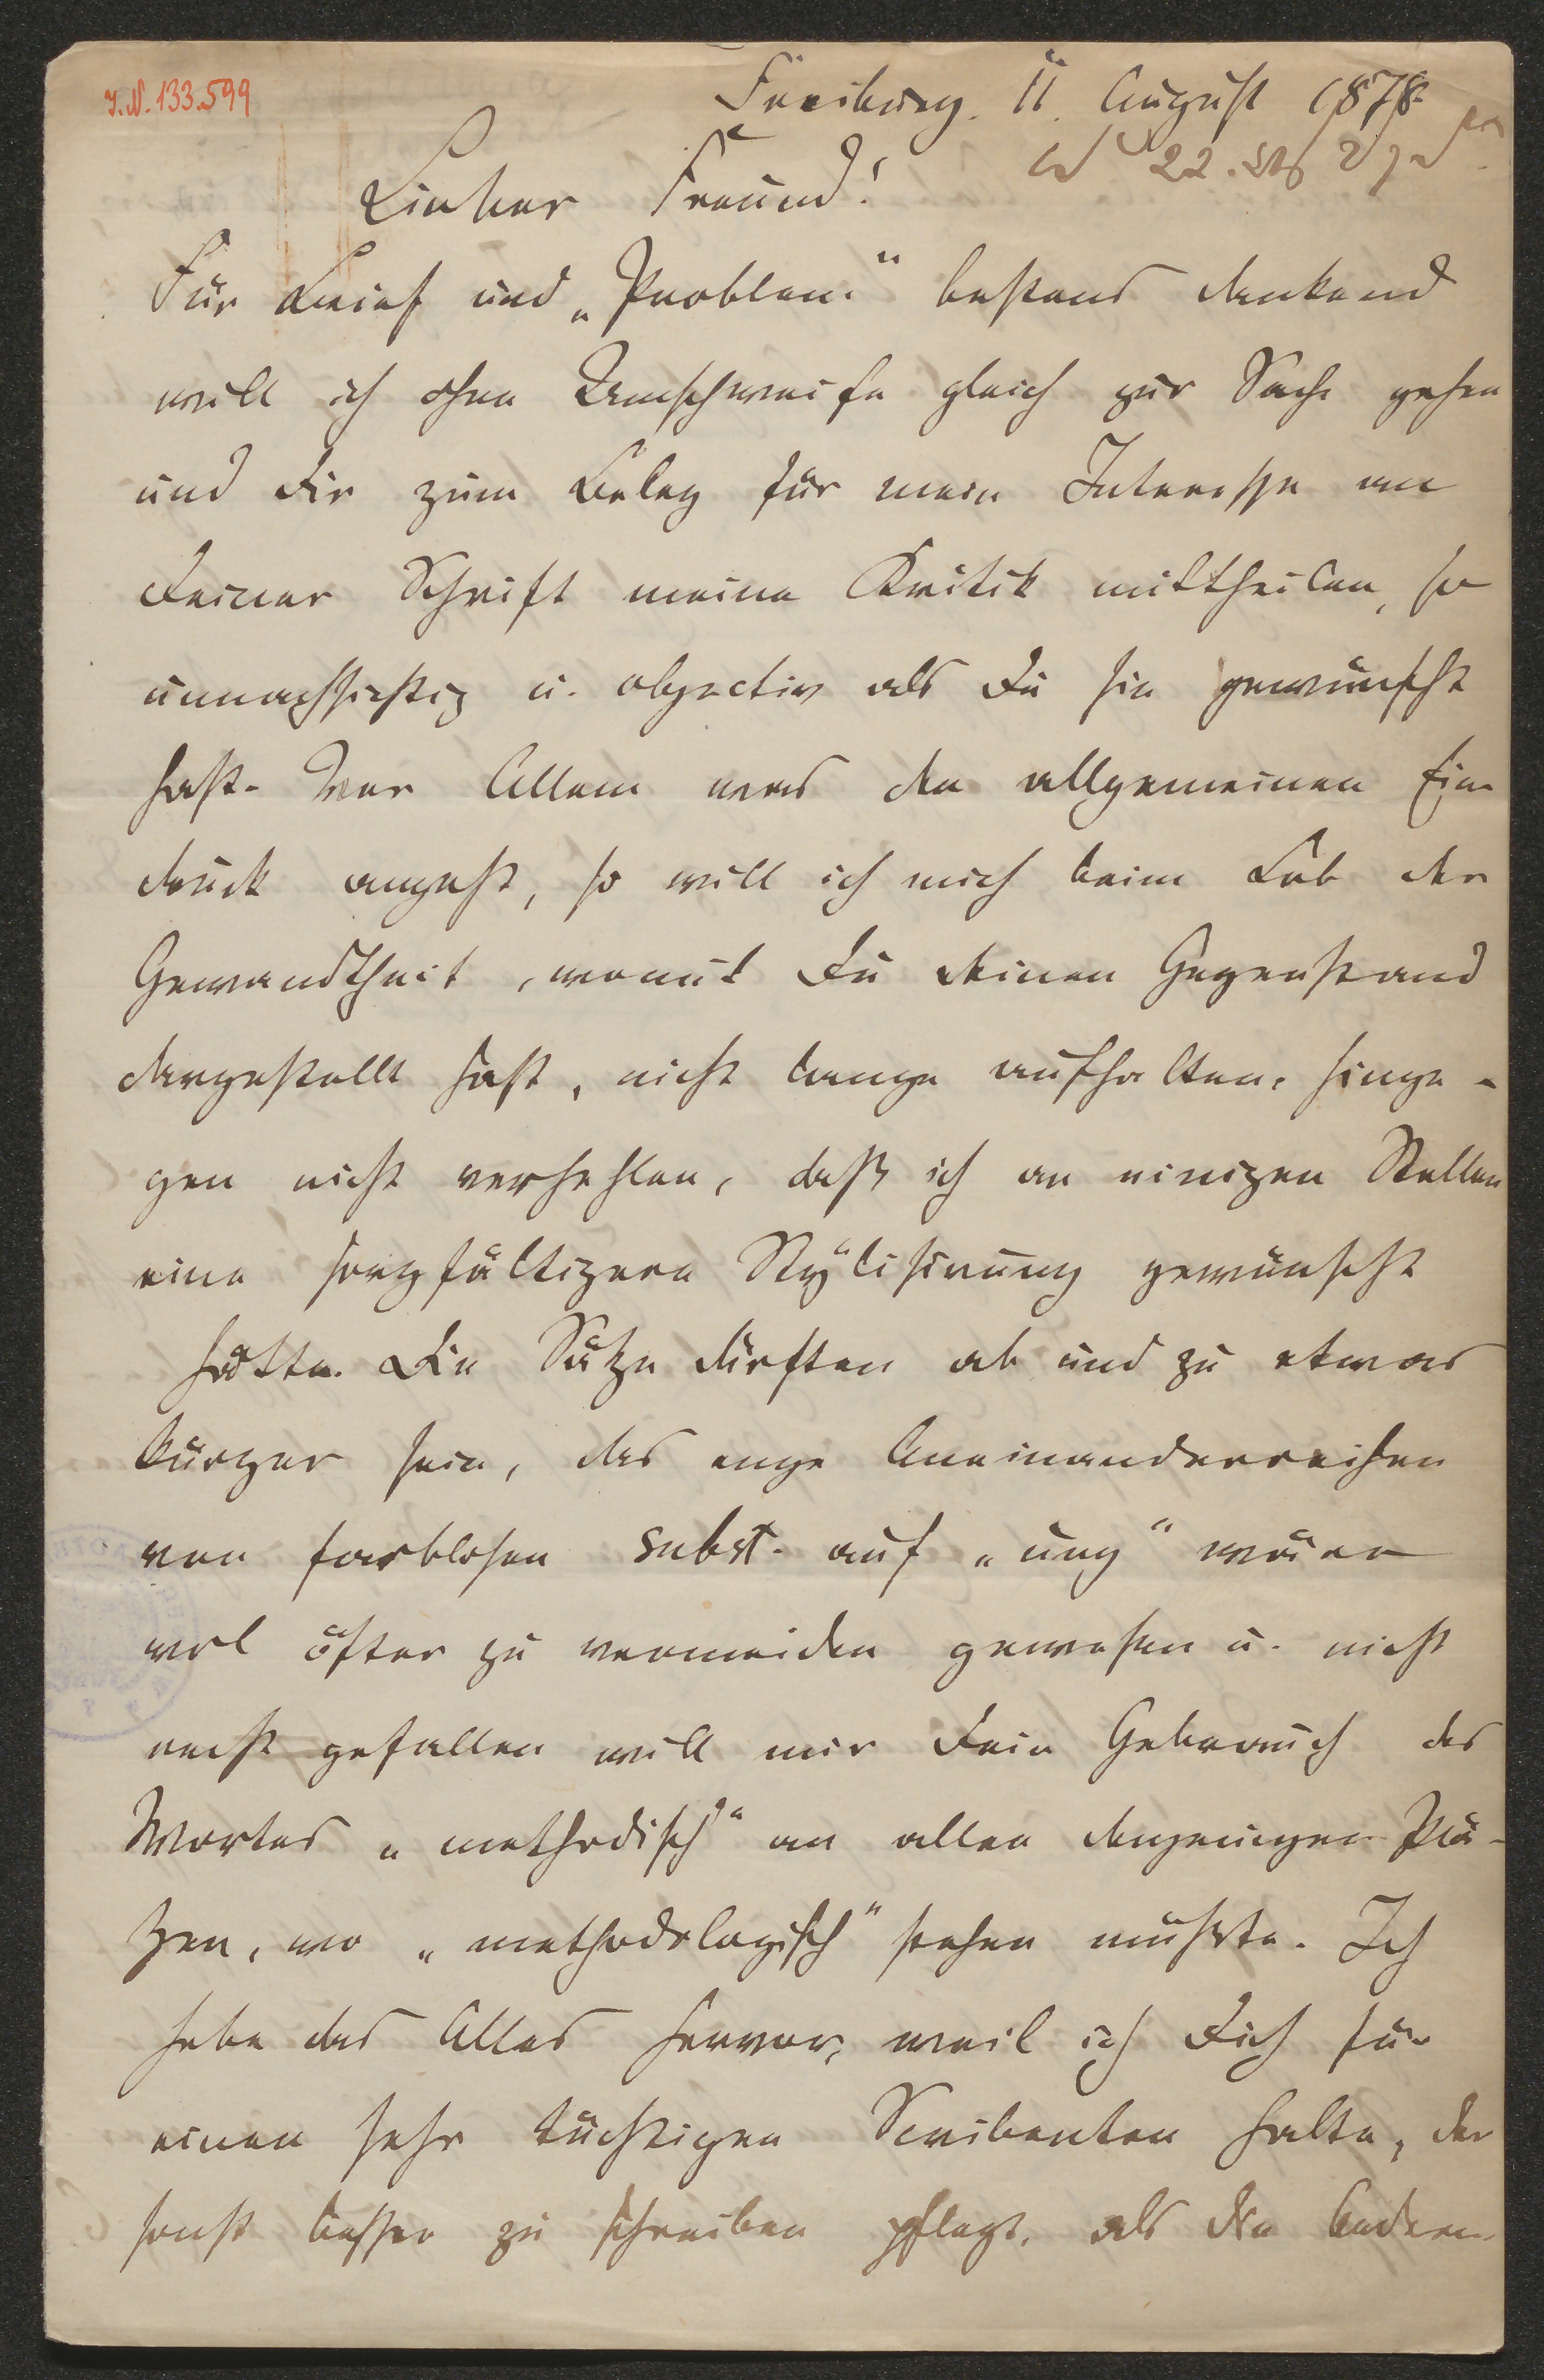 J.N. 133.599
Freiburg. 11. August 1878
22.
Lieber Freund!
Für Brief und „Problem“ bestens dankend
will ich ohne Umschweife gleich zur Sache gehen
und Dir zum Beleg für mein Interesse an
Deiner Schrift meine Kritik mittheilen, so
unnachsichtig u. objectiv als Du sie gewünscht
hast. Vor Allem was den allgemeinen Ein-
druck angeht, so will ich mich beim Lob der
Gewandtheit, womit Du Deinen Gegenstand
dargestellt hast, nicht lange aufhalten, hinge-
gen nicht verhehlen, daß ich an einigen Stellen
eine sorgfältigere Stÿlisirung gewünscht
hätte. Die Sätze dürften ab und zu etwas
kürzer sein, das enge Aneinanderreihen
von farblosen subst. auf „ung“ wäre
wol öfter zu vermeiden gewesen u. nicht
recht gefallen will mir Dein Gebrauch des
Wortes „methodisch“ an allen denjenigen Plä-
tzen, wo „methodologisch“ stehen müsste. Ich
hebe das Alles hervor, weil ich Dich für
einen sehr tüchtigen Scribenten halte, der
sonst besser zu schreiben pflegt, als die Andern